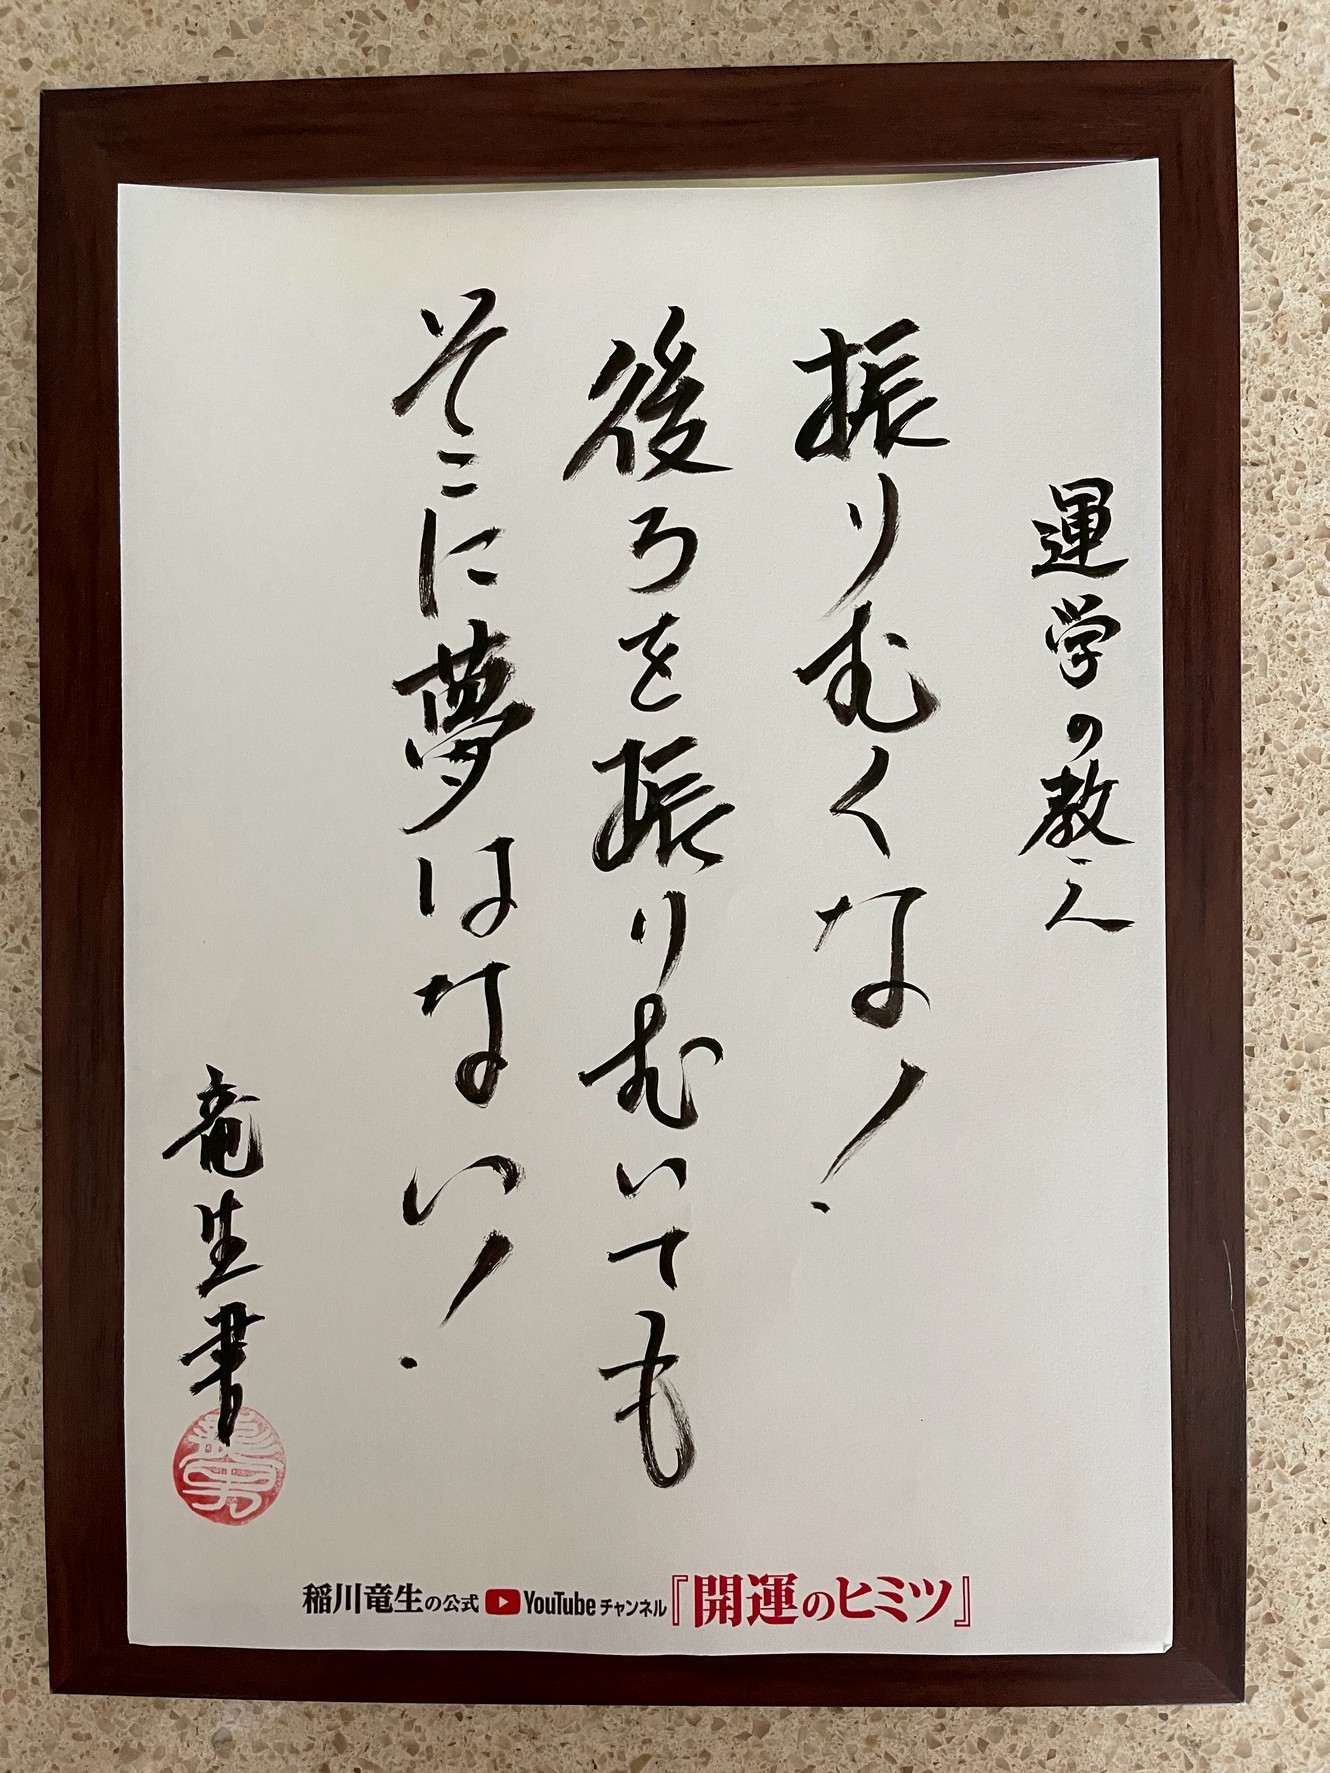 運学の教え
振りむくな！
後ろを振りむいても
そこに夢はない！
竜生書
稲川竜生の公式 YouTube チャンネル『開運のヒミツ』